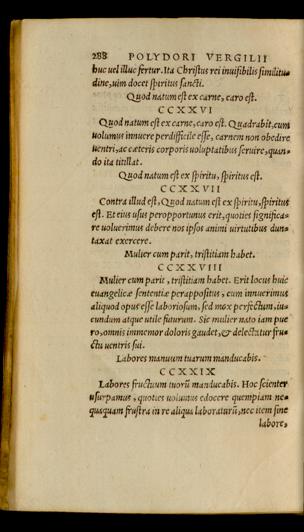 288 POLYDORI VERGILII
huc uel illuc fertur. Ita Christus rei inuisibilis similitu
dine, uim docet spiritus sancti.
Quod natum est ex carne, caro est.
CCXXVI
Quod natum est ex carne, caro est. Quadrabit, cum
uolumus innuere perdifficile esse, carnem non obedire
uentri, ac cæteris corporis uoluptatibus seruire, quan-
do ita titillat.
Quod natum est ex spiritu, spiritus est.
CCXXVII
Contra illud est, Quod natum est ex spiritu, spiritus
est. Et eius usus peropportunus erit, quoties significa-
re uoluerimus debere nos ipsos animi uirtutibus dun-
taxat exercere.
Mulier cum parit, tristitiam habet.
CCXXVIII
Mulier cum parit, tristitiam habet. Erit locus huic
euangelicæ sententiæ perappositus, cum innuerimus
aliquod opus esse laboriosum, sed mox perfectum, iu-
cundum atque utile futurum. Sic mulier nato iam pue
ro, omnis immemor doloris gaudet, & delectatur fru-
ctu uentris sui.
Labores manuum tuarum manducabis.
CCXXIX
Labores fructuum tuorũ manducabis. Hoc scienter
usurpamus, quoties uolumus edocere quempiam ne-
quaquam frustra in re aliqua laboraturũ, nec item sine
labore,